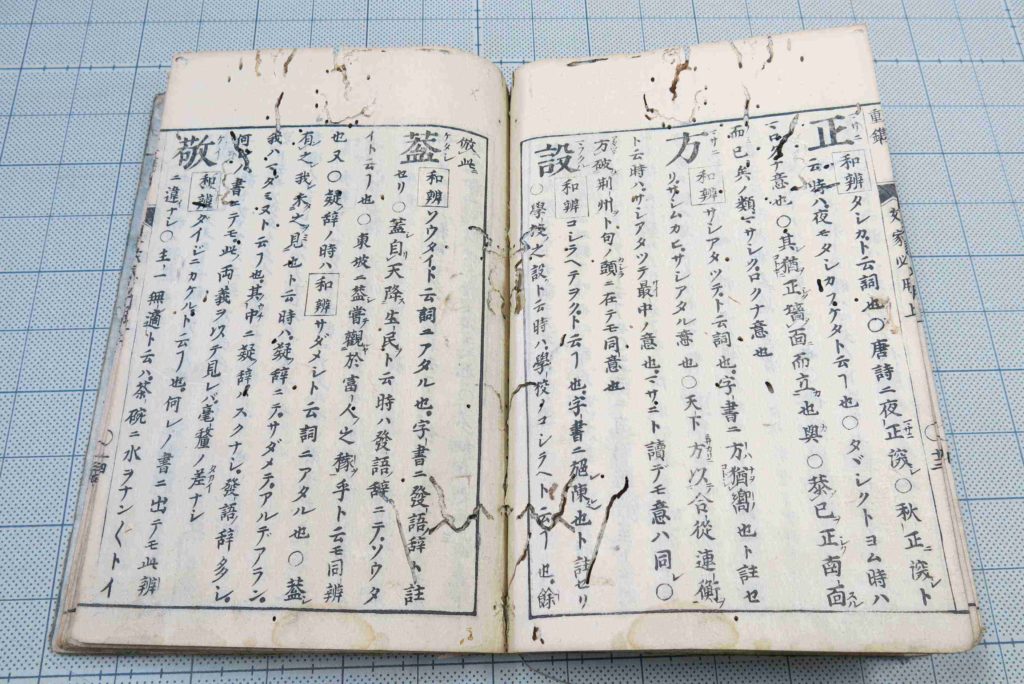 正 和辨 タシカト云詞也○唐詩ニ夜正深○秋正深ト
云時ハ夜モタシカフケタト云フ也○タヾシクトヨム時ハ
ロクナ意也○其猶正墻面而立也與○恭已正南面
而已矣ノ類マサシクロクナ意也
方 和辨 サシアタツテト云詞也字書ニ方猶嚮也ト註セ
リサシムカヒサシアタル意也○天下方以合從連衡
ト云時ハサシアタツテ最中ノ意也マサニト讀デモ意ハ同○
方破荆州ト句頭ニ在テモ同意也
設 和辨 コシラヘテヲクト云フ也字書ニ施陳也ト註セリ
○學校之設ト云時ハ學校ノコシラヘト云フ也餘
倣此
蓋 和辨 ソウタイト云詞ニアタル也字書ニ發語辞ト註
セリ○蓋自天降生民ト云時ハ發語辞ニテソウタ
イト云フ也○東坡ニ蓋嘗觀於富人之稼乎ト云モ同辨
也又○疑辞ノ時ハ 和辨 サダメシト云詞ニアタル也○蓋
有之我未之見也ト云時ハ疑辞ニテサダメテアルデアラン
我ハマダミヌト云フ也其中ニ疑辞ハスクナシ發語辞多シ
何ノ書ニテモ此両義ヲ以テ見レバ毫釐ノ差ナシ
敬 和辨 ダイジニカケルト云フ也何レノ書ニ出テモ此辨
ニ違ナシ○主一無適ト云ハ茶碗ニ水ヲナン〱トイ
重鐫
文家必用上